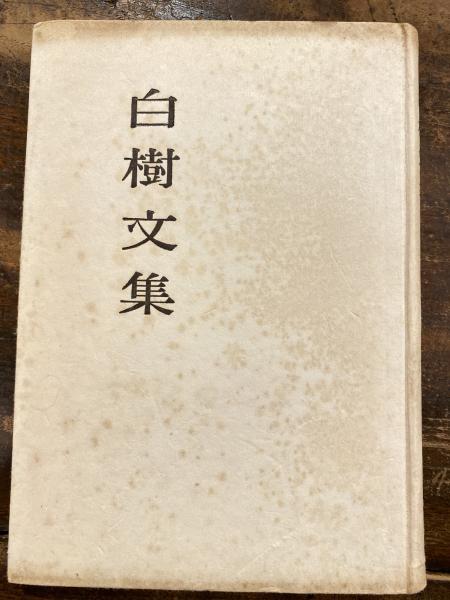 白樹文集